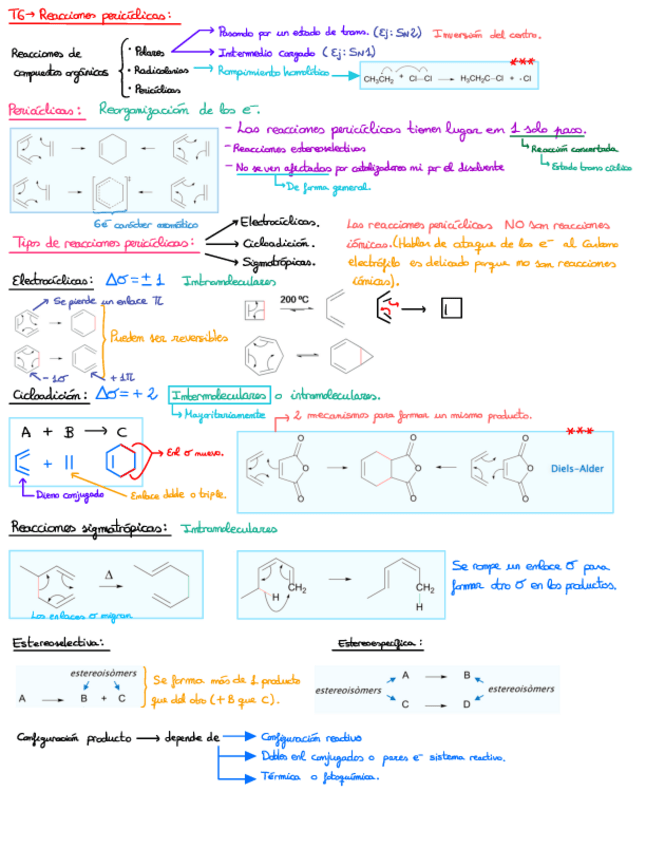 T6→ Reacciones pericíclicas:
Reacciones de compuestos orgánicos
• Polares
• Radicalarias
• Pericíclicas
Pasando por un estado de trans. (Ej: SN2) Inversión del centro.
Intermedio cargado (Ej: SN1)
Rompimiento homolítico
CH3CH2 + Cl—Cl → H3CH2C—Cl + ·Cl
Pericíclicas: Reorganización de los e-.
- Las reacciones pericíclicas tienen lugar en 1 solo paso.
Reacción concertada
- Reacciones estereoselectivas
Estado trans cíclico
- No se ven afectadas por catalizadores ni por el disolvente
De forma general.
6e- carácter aromático
Tipos de reacciones pericíclicas:
Electrocíclicas.
Cicloadición.
Sigmatrópicas.
Las reacciones pericíclicas NO son reacciones
iónicas. (Hablar de ataque de los e- al carbono
electrófilo es delicado porque no son reacciones
iónicas).
Electrocíclicas: Δσ = ± 1 Intramoleculares
Se pierde un enlace π
200 ºC
Pueden ser reversibles
-1σ
+1π
Cicloadición: Δσ = + 2 Intermoleculares o intramoleculares.
Mayoritariamente
2 mecanismos para formar un mismo producto.
A + B → C
Enl σ nuevo.
Dieno conjugado
Enlace doble o triple.
O
O
O
O
O
O
O
O
O
Diels-Alder
Reacciones sigmatrópicas: Intramoleculares
Δ
Los enlaces σ migran
H
CH2
CH2
H
Se rompe un enlace σ para
formar otro σ en los productos.
Estereoselectiva:
Estereoespecífica:
estereoisòmers
A → B + C
Se forma más de 1 producto
que del otro (+ B que C).
estereoisòmers
A → B
C → D
estereoisòmers
Configuración producto → depende de
Configuración reactivo
Dobles enl conjugados o pares e- sistema reactivo.
Térmica o fotoquímica.